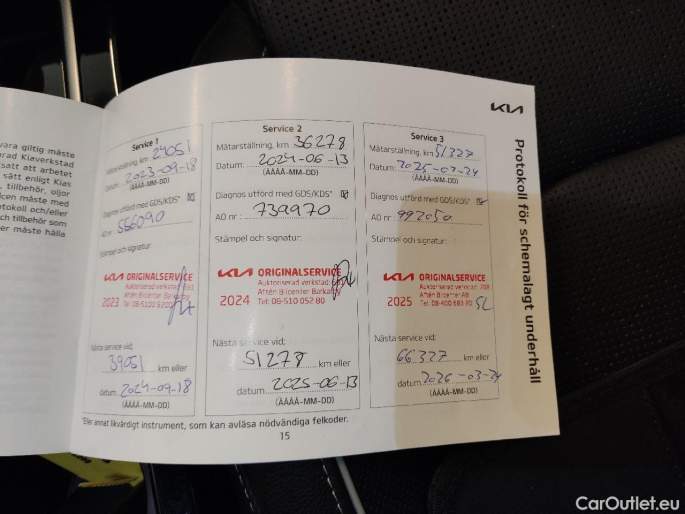 vara giltig måste
rad Kiaverkstad
satt att arbetet
sätt enligt Kias
, tillbehör, oljor
cen måste med
otokoll och/eller
ch tillbehör som
er måste hålla
KIA
Protokoll för schemalagt underhåll
Service 1
Mätarställning, km 24051
Datum: 2023-09-18
(ÅÅÅÅ-MM-DD)
Diagnos utförd med GDS/KDS*
AO nr: 566090
Stämpel och signatur
KIA ORIGINALSERVICE
Auktoriserad verkstad:
2023
Nästa service vid:
39051 km eller
datum 2024-09-18
(ÅÅÅÅ-MM-DD)
Service 2
Mätarställning, km 36278
Datum: 2024-06-13
(ÅÅÅÅ-MM-DD)
Diagnos utförd med GDS/KDS*
AO nr: 739970
Stämpel och signatur:
KIA ORIGINALSERVICE
Auktoriserad verkstad:
Aftén Bilcenter Barkarby
2024 Tel: 08-510 052 80
Nästa service vid:
51278 km eller
datum: 2025-06-13
(ÅÅÅÅ-MM-DD)
Service 3
Mätarställning, km 51327
Datum: 2025-03-24
(ÅÅÅÅ-MM-DD)
Diagnos utförd med GDS/KDS*
AO nr: 992050
Stämpel och signatur:
KIA ORIGINALSERVICE
Auktoriserad verkstad:
Aftén Bilcenter AB
2025
Nästa service vid:
66327 km eller
datum 2026-03-24
(ÅÅÅÅ-MM-DD)
*Eller annat likvärdigt instrument, som kan avläsa nödvändiga felkoder.
15
CarOutlet.eu